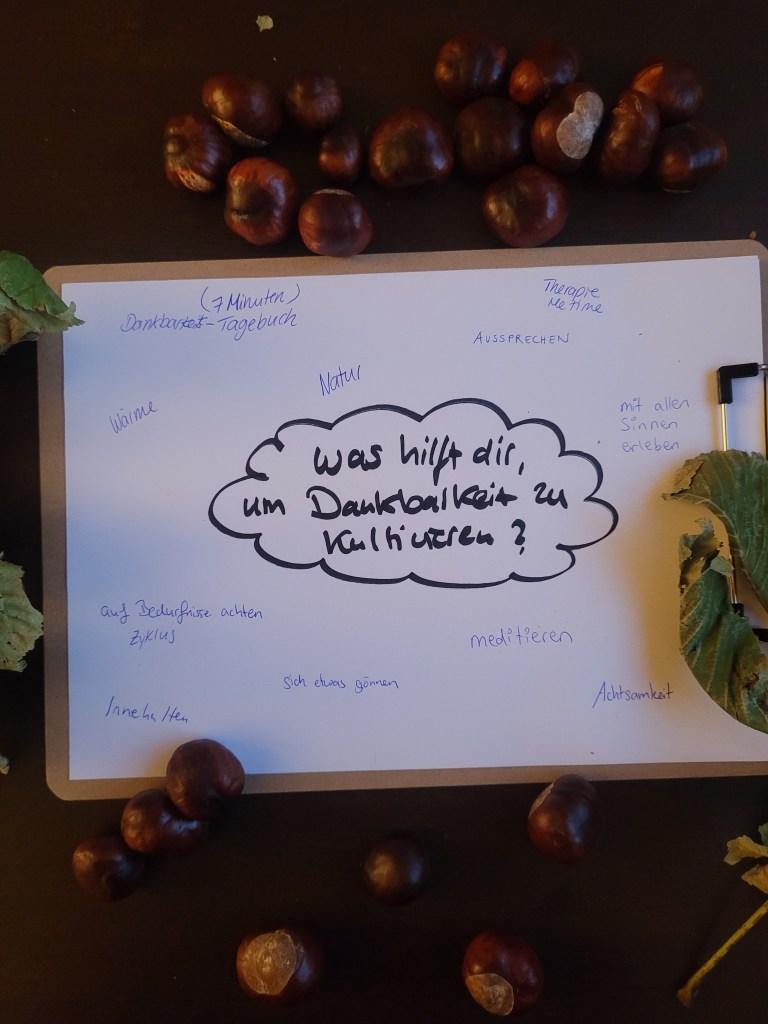 (7 Minuten)
Dankbarkeit-Tagebuch
Therapie
Me time
AUSSPRECHEN
Natur
Wärme
mit allen
Sinnen
erleben
Was hilft dir,
um Dankbarkeit zu
kultivieren?
auf Bedürfnisse achten
Zyklus
meditieren
sich etwas gönnen
Achtsamkeit
Innehalten